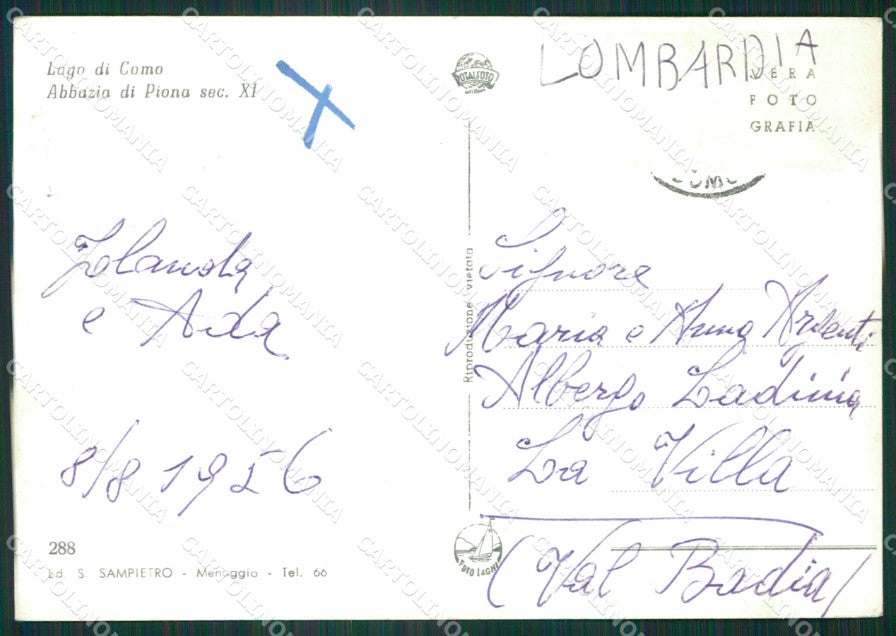 Lago di Como
Abbazia di Piona sec. XI
TOTALFOTO
LOMBARDIA
VERA
FOTO
GRAFIA
COMO
Jolanda
e Ada
8/8 1956
Riproduzione vietata
Signore
Maria e Anna Argenti
Albergo Ladinia
La Villa
(Val Badia)
288
Ed. S. SAMPIETRO - Menaggio - Tel. 66
FOTO LAGHI
CARTOLINOMANIA